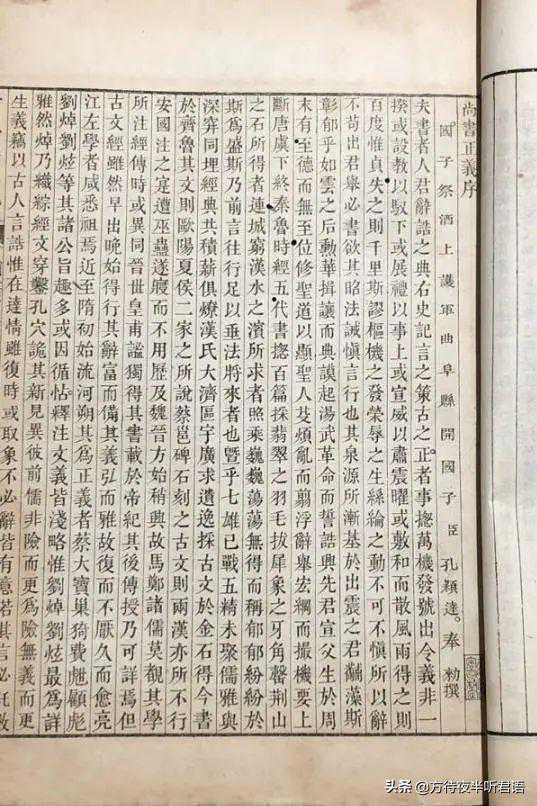 尚書正義序
國子祭酒上護軍曲阜縣開國子臣孔穎達奉勑撰
夫書者人君辭誥之典右史記言之策古之王者事揔萬機發號出令義非一
揆或設教以馭下或展禮以事上或宣威以肅震曜或敷和而散風雨得之則
百度惟貞失之則千里斯謬樞機之發榮辱之生絲綸之動不可不慎所以辭
不苟出君舉必書欲其昭法誡慎言行也其泉源所漸基於出震之君黼藻斯
彰郁乎如雲之后勳華揖讓而典謨起湯武革命而誓誥興先君宣父生於周
末有至德而無至位修聖道以顯聖人芟煩亂而翦浮辭舉宏綱而撮機要上
斷唐虞下終秦魯時經五代書揔百篇採翡翠之羽毛拔犀象之牙角罄荊山
之石所得者連城窮漢水之濱所求者照乘巍巍蕩蕩無得而稱郁郁紛紛於
斯爲盛斯乃前言往行足以垂法將來者也暨乎七雄已戰五精未聚儒雅與
深穽同埋經典共積薪俱燎漢氏大濟區宇廣求遺逸採古文於金石得今書
於齊魯其文則歐陽夏侯二家之所說蔡邕碑石刻之古文則兩漢亦所不行
安國注之寔遭巫蠱遂寢而不用歷及魏晉方始稍興故馬鄭諸儒莫覩其學
所注經傳時或異同晉世皇甫謐獨得其書載於帝紀其後傳授乃可詳焉但
古文經雖然早出晚始得行其辭富而備其義弘而雅故復而不厭久而愈亮
江左學者咸悉祖焉近至隋初始流河朔其爲正義者蔡大寶巢猗費甝顧彪
劉焯劉炫等其諸公旨趣多或因循怗釋注文義皆淺略惟劉焯劉炫最爲詳
雅然焯乃織綜經文穿鑿孔穴詭其新見異彼前儒非險而更爲險無義而更
生義竊以古人言誥惟在達情雖復時或取象不必辭皆有意若其言必託數
头条 @方待夜半听君语